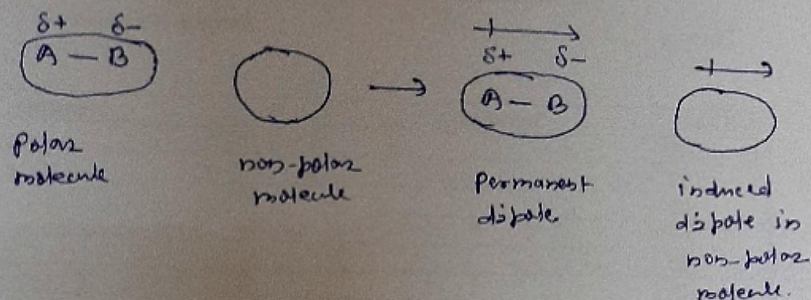 δ+ δ-
A — B
Polar
molecule
non-polar
molecule
δ+ δ-
A — B
Permanent
dipole
induced
dipole in
non-polar
molecule.